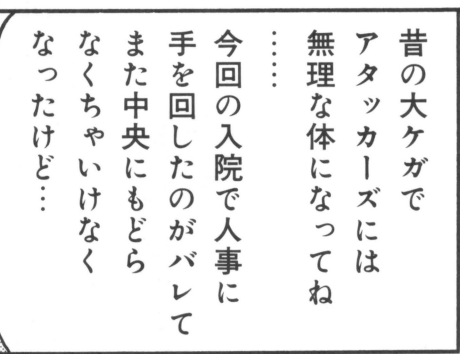 昔の大ケガで
アタッカーズには
無理な体になってね
……
今回の入院で人事に
手を回したのがバレて
また中央にもどら
なくちゃいけなく
なったけど…